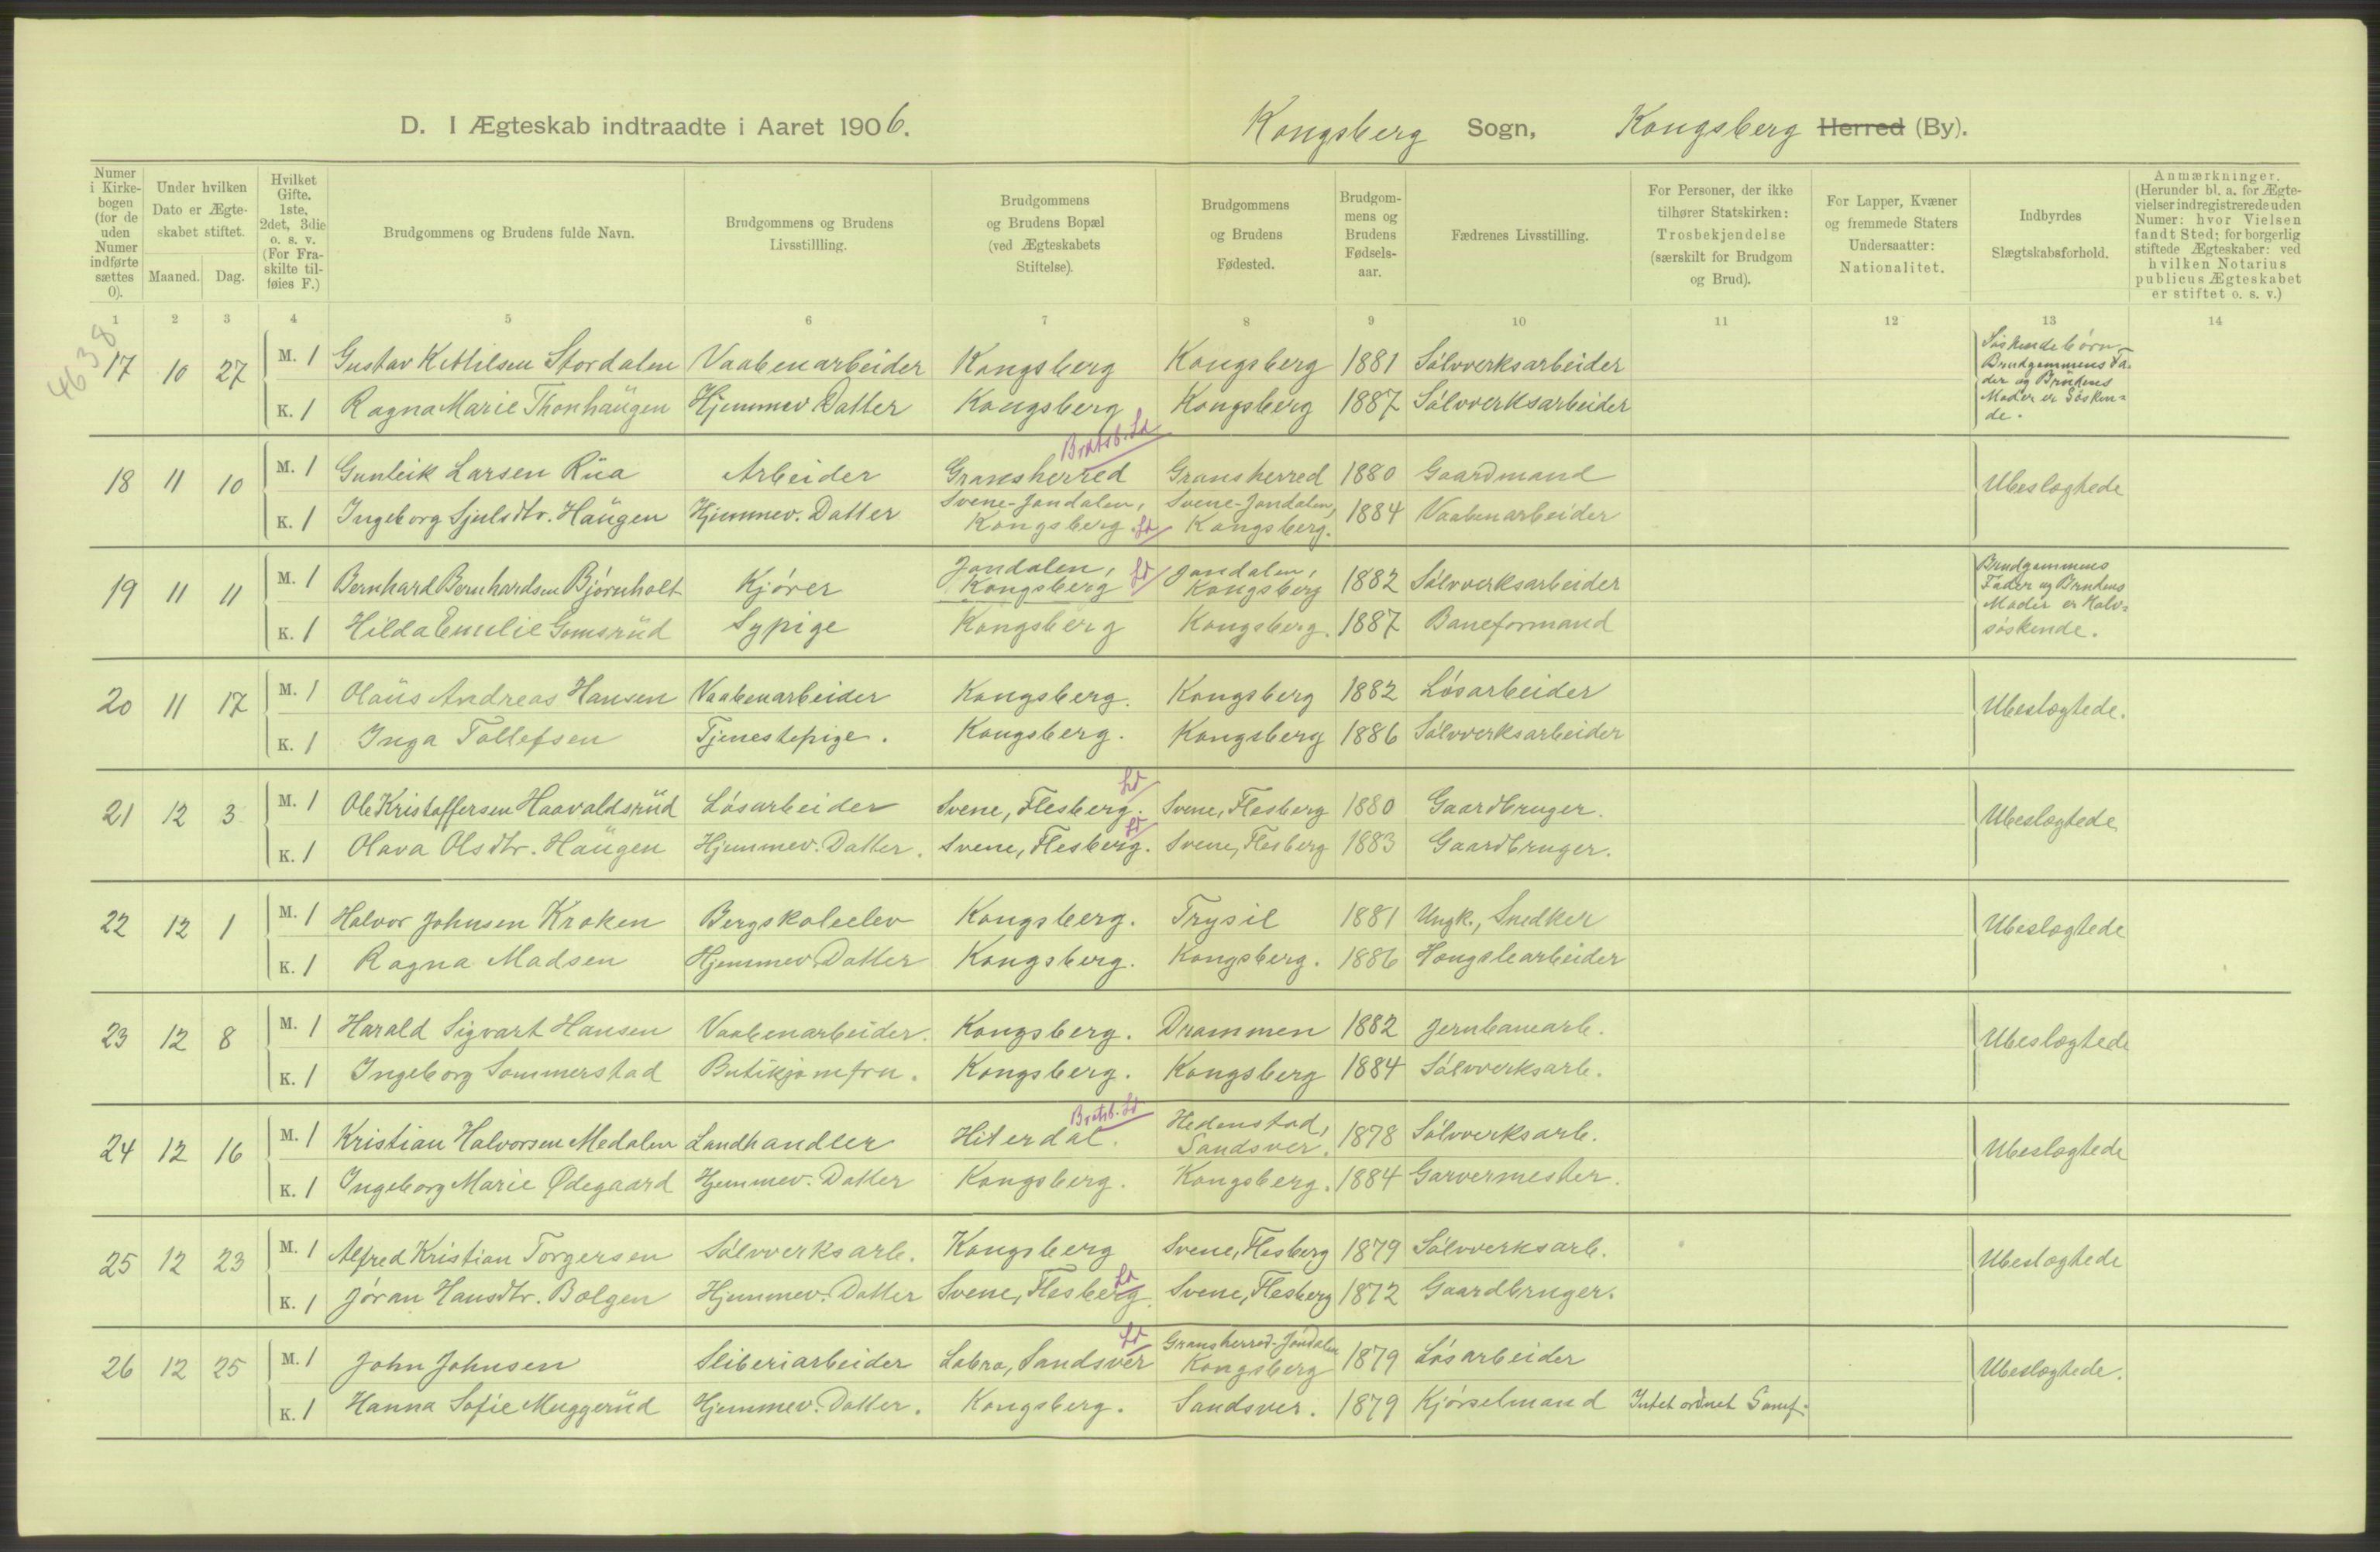 D. I Ægteskab indtraadte i Aaret 1906. Kongsberg Sogn, Kongsberg Herred (By).
Numer i Kirkebogen (for de uden Numer indførte sættes 0).
Under hvilken Dato er Ægteskabet stiftet.
Maaned. Dag.
Hvilket Gifte. 1ste, 2det, 3die o. s. v. (For Fraskilte tilføies F.)
Brudgommens og Brudens fulde Navn.
Brudgommens og Brudens Livsstillling.
Brudgommens og Brudens Bopæl (ved Ægteskabets Stiftelse).
Brudgommens og Brudens Fødested.
Brudgommens og Brudens Fødselsaar.
Fædrenes Livsstilling.
For Personer, der ikke tilhører Statskirken: Trosbekjendelse (særskilt for Brudgom og Brud).
For Lapper, Kvæner og fremmede Staters Undersaatter: Nationalitet.
Indbyrdes Slægtskabsforhold.
Anmærkninger. (Herunder bl. a. for Ægtevielser indregistrerede uden Numer: hvor Vielsen fandt Sted; for borgerlig stiftede Ægteskaber: ved hvilken Notarius publicus Ægteskabet er stiftet o. s. v.)
1 2 3 4 5 6 7 8 9 10 11 12 13 14
4638
17 10 27 M. 1 Gustav Kittilsen Stordalen Vaabenarbeider Kongsberg Kongsberg 1881 Sølvverksarbeider
K. 1 Ragna Marie Thonhaugen Hjemmev Datter Kongsberg Kongsberg 1887 Sølvverksarbeider
Søskendebørn
Brudgommens Fa-
der og Brudens
Moder er Søsken=
de.
Bratsb. Ld
18 11 10 M. 1 Gunleik Larsen Rua Arbeider Gransherred Gransherred 1880 Gaardmand Ubeslægtede
K. 1 Ingeborg Sjulsdtr. Haugen Hjemmev. Datter Svene-Jondalen, Kongsberg. Ld Svene-Jondalen, Kongsberg. 1884 Vaabenarbeider
19 11 11 M. 1 Bernhard Bernhardsen Bjørnholt Kjører Jondalen, Kongsberg Ld Jondalen, Kongsberg 1882 Sølvverksarbeider
K. 1 Hilda Emilie Gomsrud Sypige Kongsberg Kongsberg. 1887 Baneformand
Brudgommens
Fader og Brudens
Moder er Halv=
søskende.
20 11 17 M. 1 Olaus Andreas Hansen Vaabenarbeider Kongsberg. Kongsberg 1882 Løsarbeider Ubeslægtede.
K. 1 Inga Tollefsen Tjenestepige. Kongsberg. Kongsberg 1886 Sølvverksarbeider
21 12 3 M. 1 Ole Kristoffersen Haavaldsrud Løsarbeider Svene, Flesberg. Ld Svene, Flesberg 1880 Gaardbruger. Ubeslægtede
K. 1 Olava Olsdtr. Haugen Hjemmev. Datter. Svene, Flesberg. Ld Svene, Flesberg 1883 Gaardbruger.
22 12 1 M. 1 Halvor Johnsen Kroken Bergskoleelev Kongsberg. Trysil 1881 Ungk., Snedker Ubeslægtede
K. 1 Ragna Madsen Hjemmev Datter Kongsberg. Kongsberg. 1886 Hængslearbeider
23 12 8 M. 1 Harald Sigvart Hansen Vaabenarbeider. Kongsberg. Drammen 1882 Jernbanearb. Ubeslægtede
K. 1 Ingeborg Sommerstad Butikjomfru. Kongsberg. Kongsberg 1884 Sølvverksarb.
Bratsb. Ld
24 12 16 M. 1 Kristian Halvorsen Medalen Landhandler Hiterdal. Hedenstad, Sandsver. 1878 Sølvverksarb. Ubeslægtede
K. 1 Ingeborg Marie Ødegaard Hjemmev. Datter Kongsberg. Kongsberg. 1884 Garvermester.
25 12 23 M. 1 Alfred Kristian Torgersen Sølvverksarb. Kongsberg Svene, Flesberg 1879 Sølvverksarb. Ubeslægtede
K. 1 Jøran Hansdtr. Bolgen Hjemmev. Datter Svene, Flesberg. Ld Svene, Flesberg 1872 Gaardbruger.
26 12 25 M. 1 John Johnsen Sliberiarbeider Labro, Sandsver Ld Gransherred-Jondalen Kongsberg 1879 Løsarbeider Ubeslægtede.
K. 1 Hanna Sofie Muggerud Hjemmev. Datter. Kongsberg. Sandsver. 1879 Kjørselmand Intet ordnet Samf.